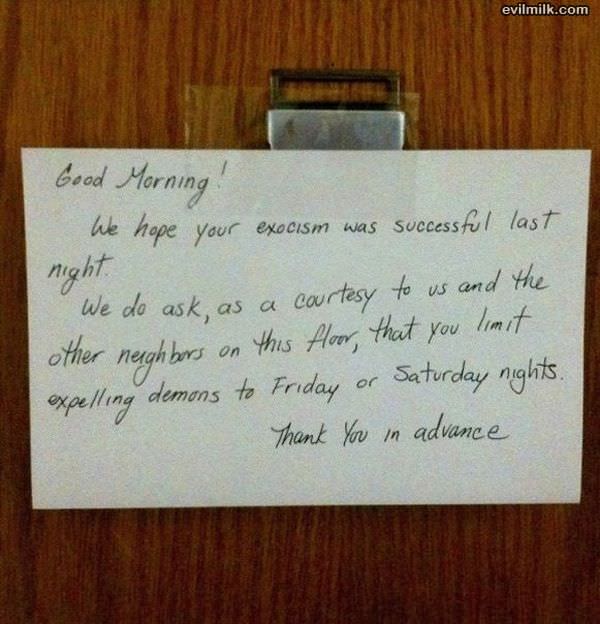 evilmilk.com
Good Morning!
We hope your exocism was successful last
night.
We do ask, as a courtesy to us and the
other neighbors on this floor, that you limit
expelling demons to Friday or Saturday nights.
Thank You in advance